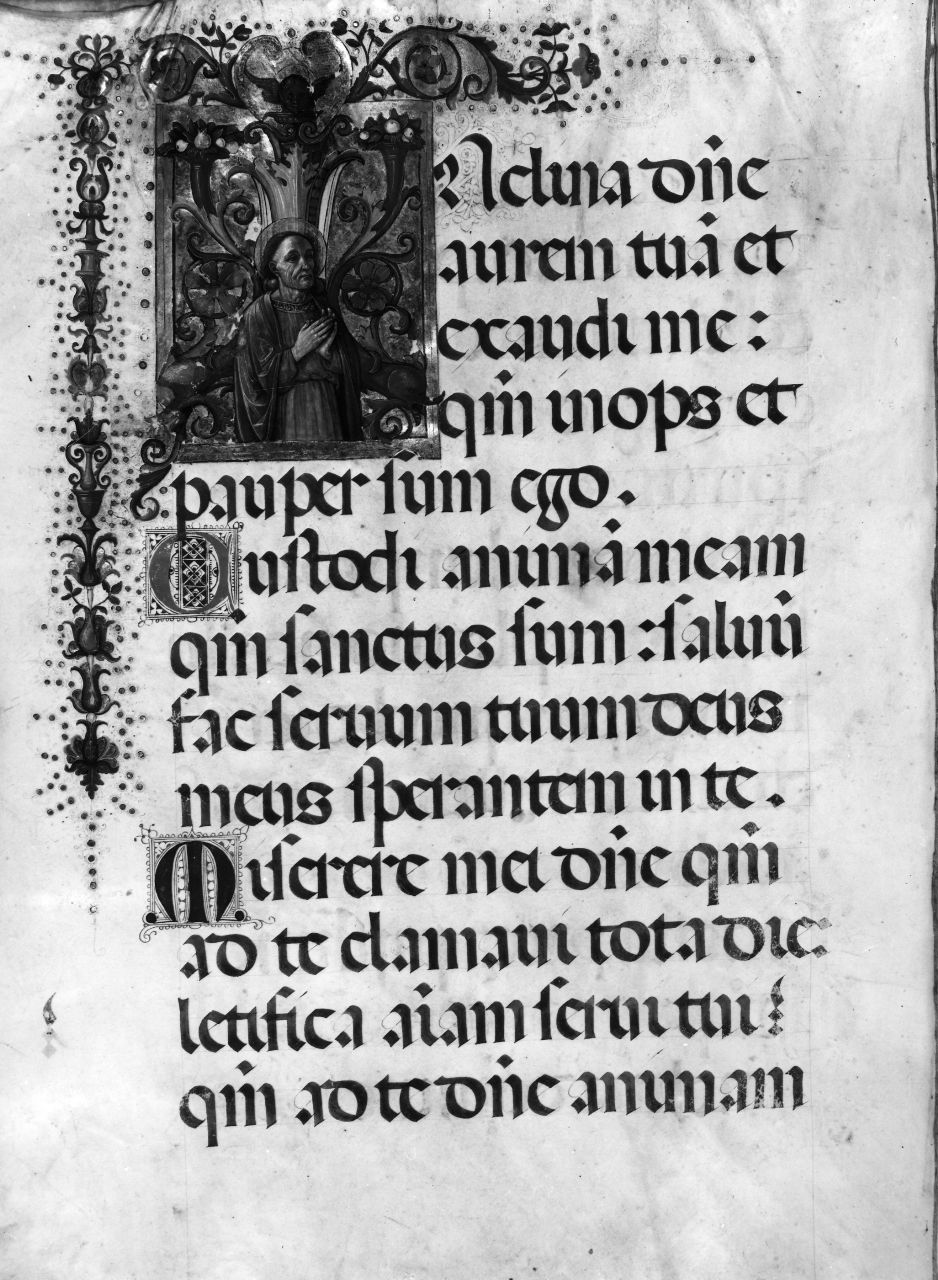 Nclina dñe
aurem tuã et
exaudi me:
qm̃ inops et
pauper sum ego.
Custodi animã meam
qm̃ sanctus sum: saluũ
fac seruum tuum deus
meus sperantem in te.
Miserere mei dñe qm̃
ad te clamaui tota die:
letifica aĩam serui tui:
qm̃ ad te dñe animam